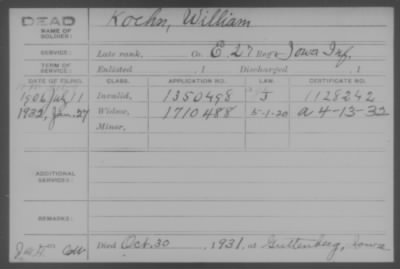 DEAD
NAME OF SOLDIER: Koehn, William
SERVICE: Late rank, Co. E. 27 Reg't Iowa Inf.
TERM OF SERVICE: Enlisted , 1 Discharged , 1
DATE OF FILING. CLASS. APPLICATION NO. LAW. CERTIFICATE NO.
1906 July 11 Invalid, 1350498 J 1128242
1932, Jan. 27 Widow, 1710488 5-1-20 a 4-13-32
Minor,
ADDITIONAL SERVICES:
REMARKS:
Died Oct. 30, 1931, at Guttenberg, Iowa